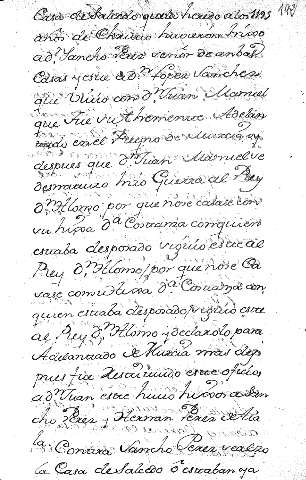 Casa de Salcedo que la heredo año 1193
años de Christo huvieron hixo
a dn Sancho Perez señor de ambas
Casas y este a dn Lopez Sanchez
que Vivio con dn Juan Manuel
que fue su Themiente Adelan
tado en el Reyno de Murcia, y
despues que dn Juan Manuel se
desnaturo hizo Guerra al Rey
dn Alomo por que no se casase con
su hixa da Costanza con quien
estaba desposado siguio este al
Rey dn Alomo, por que no se Ca
sase con su hixa da Costanza con
quien estaba desposado, siguio este
al Rey dn Alomo y declarolo para
Adelantado de Murcia mas des
pues fue destituido este oficio
a dn Juan este huvo hixos a San
cho Perez y Hernan Perez de Aia
la. Contra Sancho Perez se alzo
la Casa de Salcedo o estaban ya